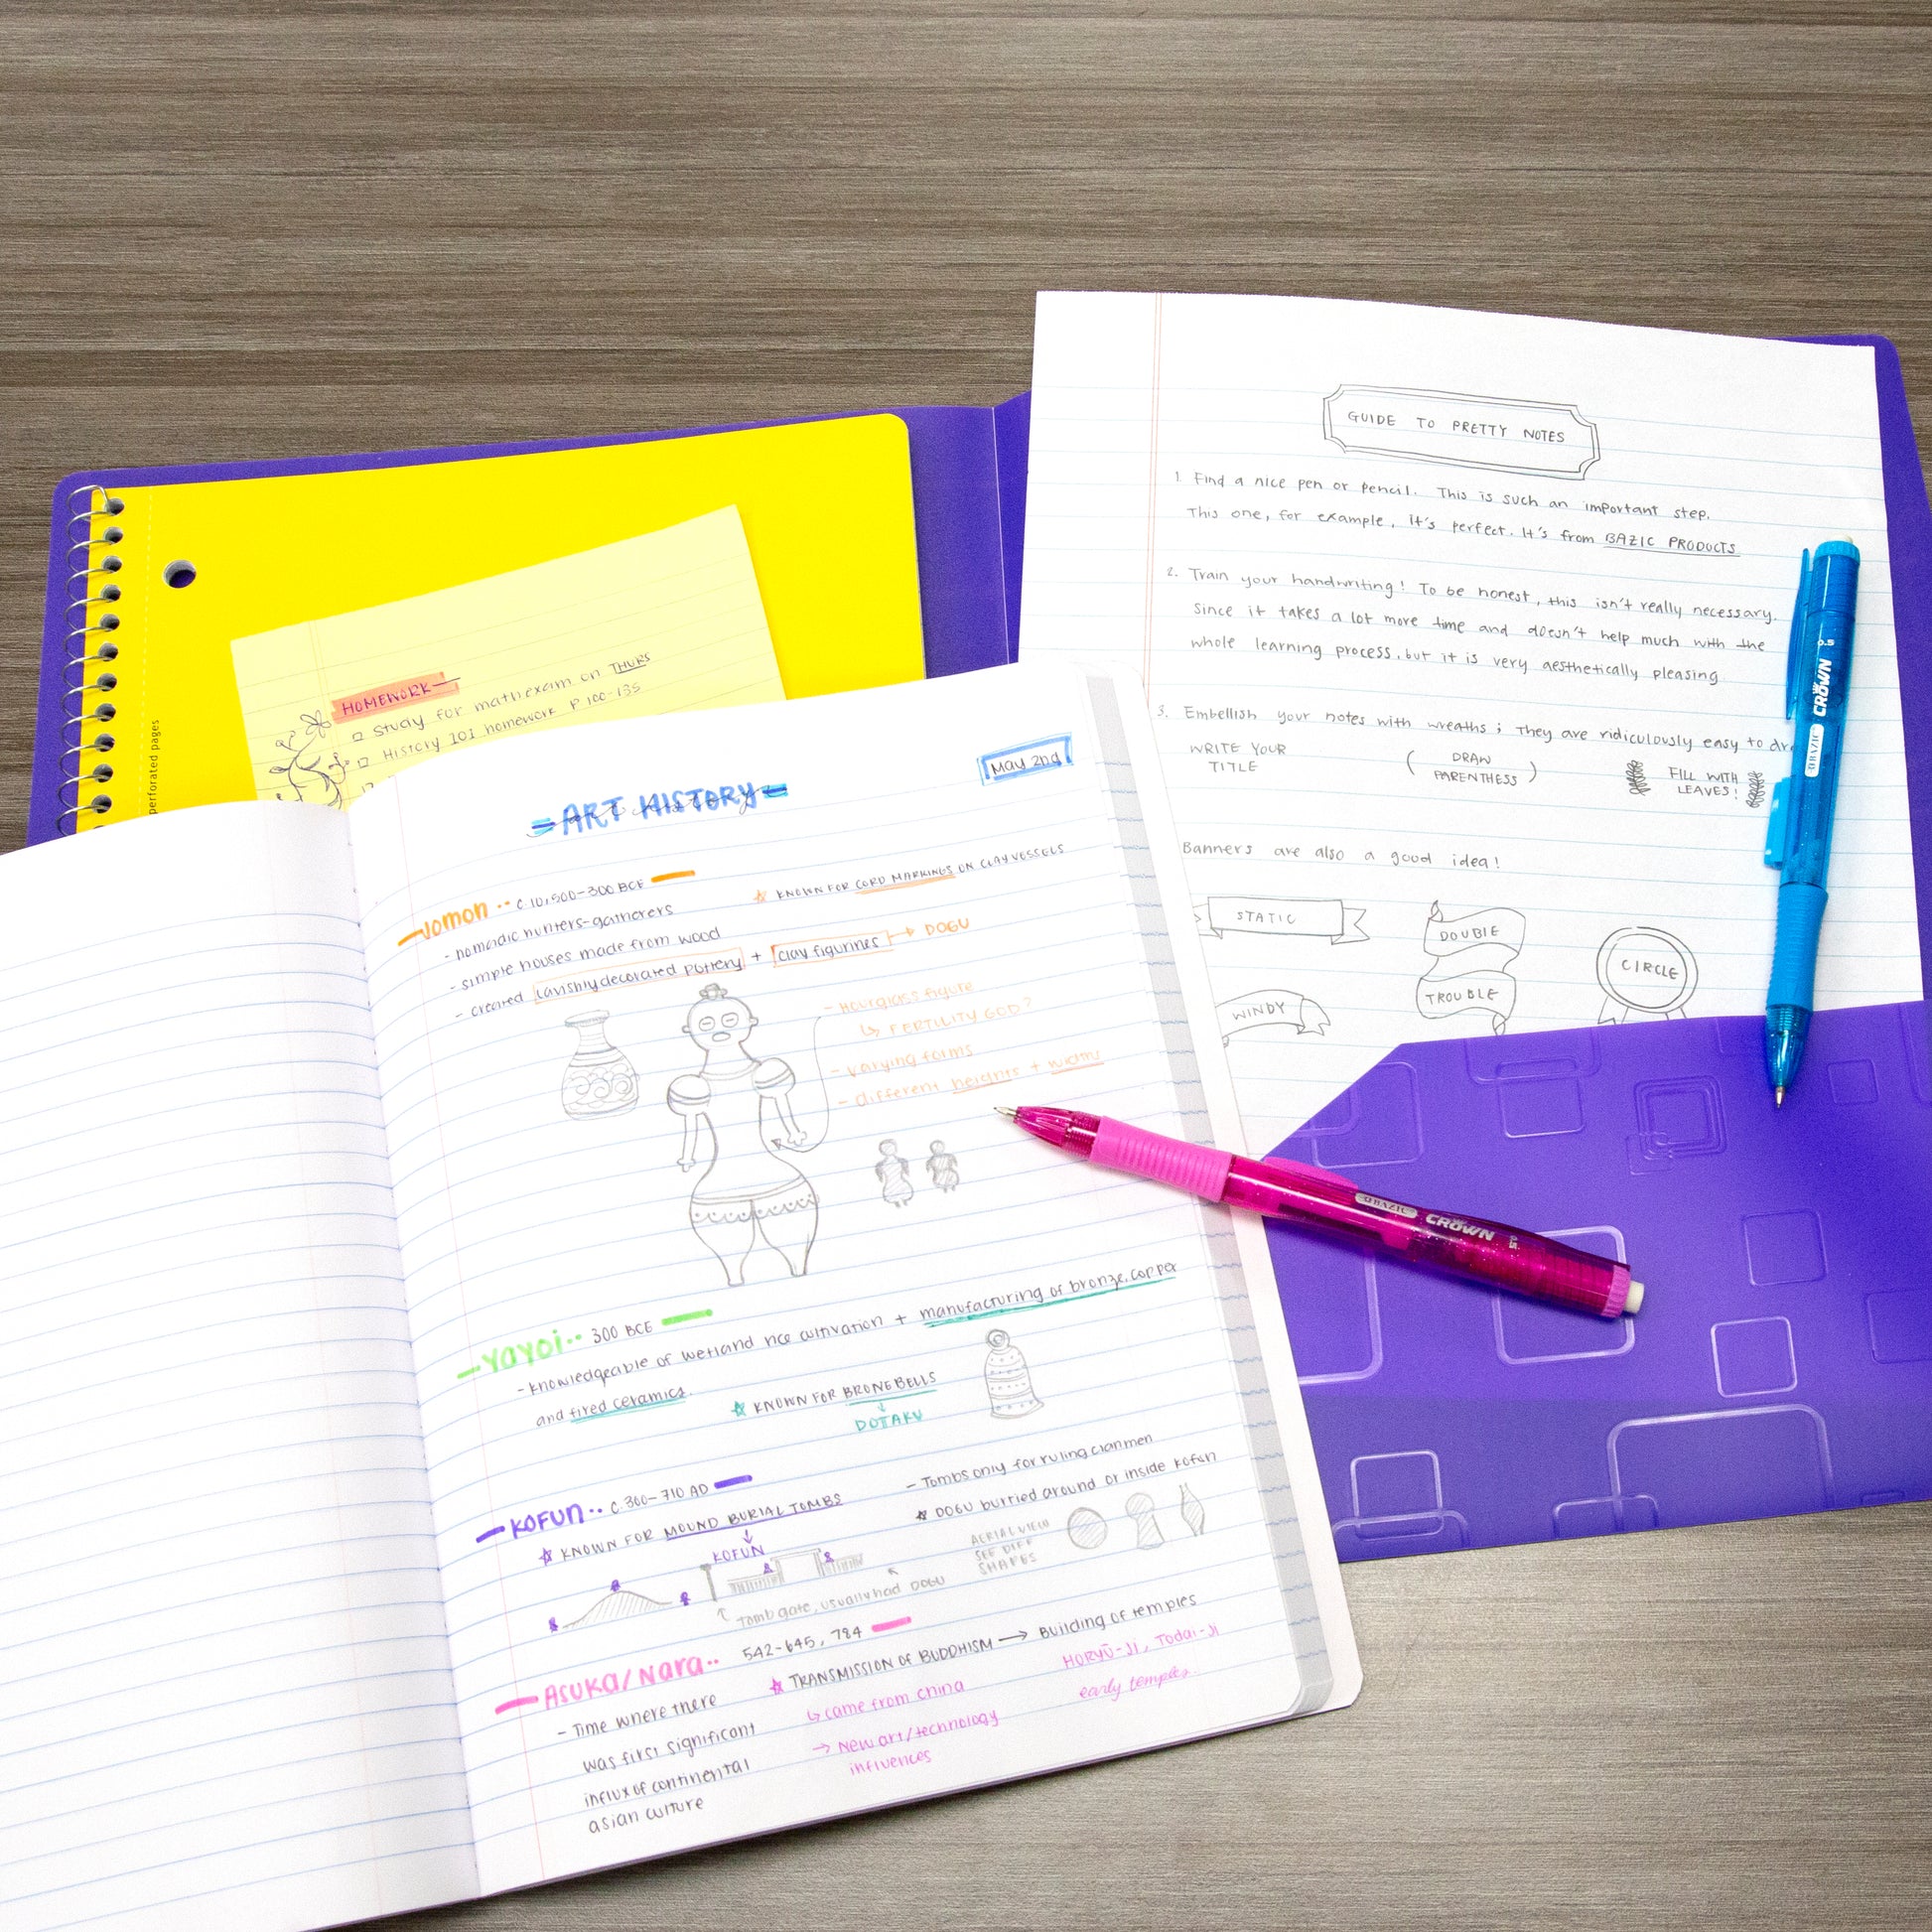 GUIDE TO PRETTY NOTES
1. Find a nice pen or pencil. This is such an important step.
This one, for example, it's perfect. It's from BAZIC PRODUCTS
2. Train your handwriting! To be honest, this isn't really necessary.
Since it takes a lot more time and doesn't help much with the
whole learning process, but it is very aesthetically pleasing.
3. Embellish your notes with wreaths; They are ridiculously easy to
WRITE YOUR
TITLE
( DRAW
PARENTHESS )
FILL WITH
LEAVES!
Banners are also a good idea!
STATIC
DOUBLE
TROUBLE
CIRCLE
WINDY
BAZIC CROWN 0.5
perforated pages
HOMEWORK
Study for math exam on THURS
History 101 homework P 100-135
May 2nd
ART HISTORY
Jomon ·· c 10,500-300 BCE
☆ KNOWN FOR CORD MARKINGS ON CLAY VESSELS
- nomadic hunters-gatherers
- simple houses made from wood
- created lavishly decorated pottery + clay figurines → DOGU
- Hourglass figure
↳ FERTILITY GOD?
- varying forms
- different heights + widths
BAZIC CROWN 0.5
Yayoi ·· 300 BCE
- knowledgeable of wetland rice cultivation + manufacturing of bronze, copper
and fired ceramics.
☆ KNOWN FOR BRONE BELLS
↓
DOTAKU
KOFUN ·· c.300-710 AD
☆ KNOWN FOR MOUND BURIAL TOMBS
↓
KOFUN
- Tombs only for ruling clanmen
☆ DOGU burried around or inside kofun
AERIAL VIEW
SEE DIFF
SHAPES
Tomb gate, usually had DOGU
Asuka/Nara ·· 542-645, 784
- Time where there
was first significant
influx of continental
asian culture
☆ TRANSMISSION OF BUDDHISM → Building of temples
↳ came from china
→ New art/technology
influences
HORYŪ-JI, Todai-ji
early temples